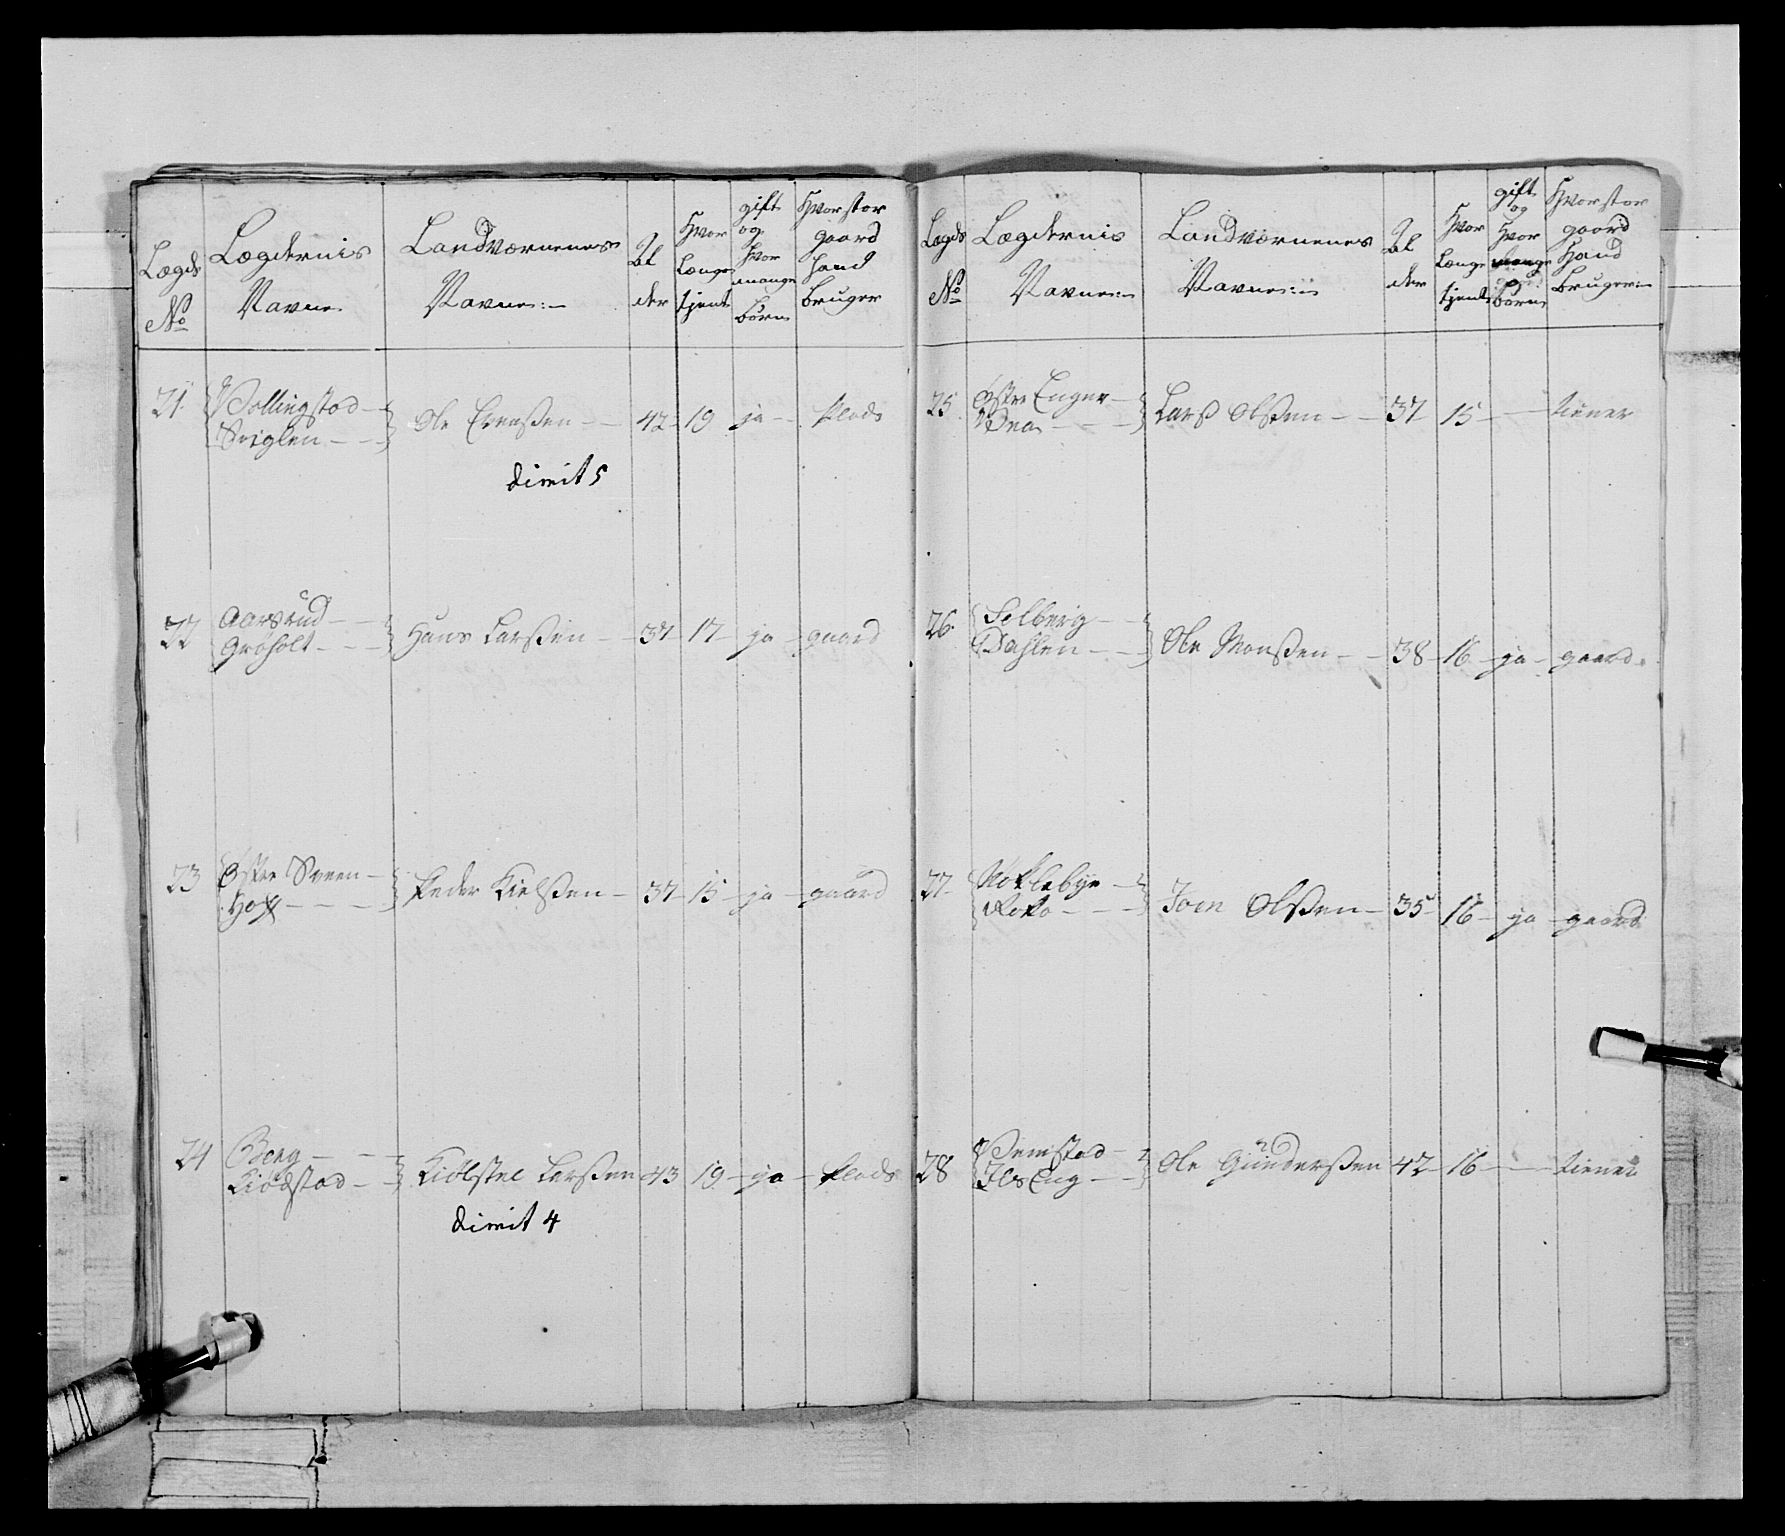 Lægds No
Lægdernis Navne
Landværnenes Navne:
Alder
Hvor Længe tjent
gift og Hvor mange børn
Hvor stor gaard hand bruger
21. Vollingstad Sviglen Ole 42 19 ja Plads
dimit 5
22 Aarsrud Grøholt Hans Larßen 37 17 ja gaard
23 Østre Sveen Hoff Peder Kielßen 37 15 ja gaard
24 Berg Kiølstad Kiølstel Larßen 43 19 ja Plads
dimit 4
Lægds No
Lægdernis Navne:
Landværnenes Navne:
Alder
Hvor Længe tjent
gift og Hvor mange børn
Hvor stor gaard Hand bruger
25 Østre Enger Lars Olßen 37 15 tiener
26. Solberg Dahlen Ole Monßen 38 16 ja gaard
27 Nøklebye Roko Joen Olßen 35 16 ja gaard
28 Ols Eng Ole Günderßen 42 16 tiener